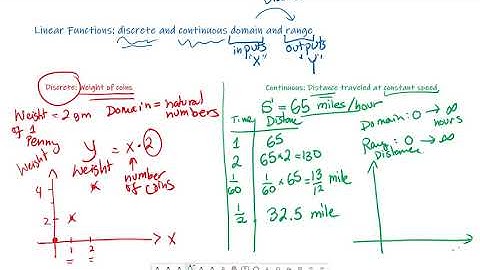 Linear Functions: discrete and continuous domain and range
inputs outputs
"X" "Y"
Discrete: Weight of coins
Weight = 2 gm
of 1
Penny
Domain = natural
numbers
y = x · 2
Weight
number
of coins
Weight
4
2
1 2
X
Continuous: Distance traveled at constant speed
S' = 65 miles/hour
Time Distance
1 65
2 65×2=130
1/60 1/60 × 65 = 13/12 mile
1/2 32.5 mile
Domain: 0 → ∞
hours
Rang: 0 → ∞
Distance